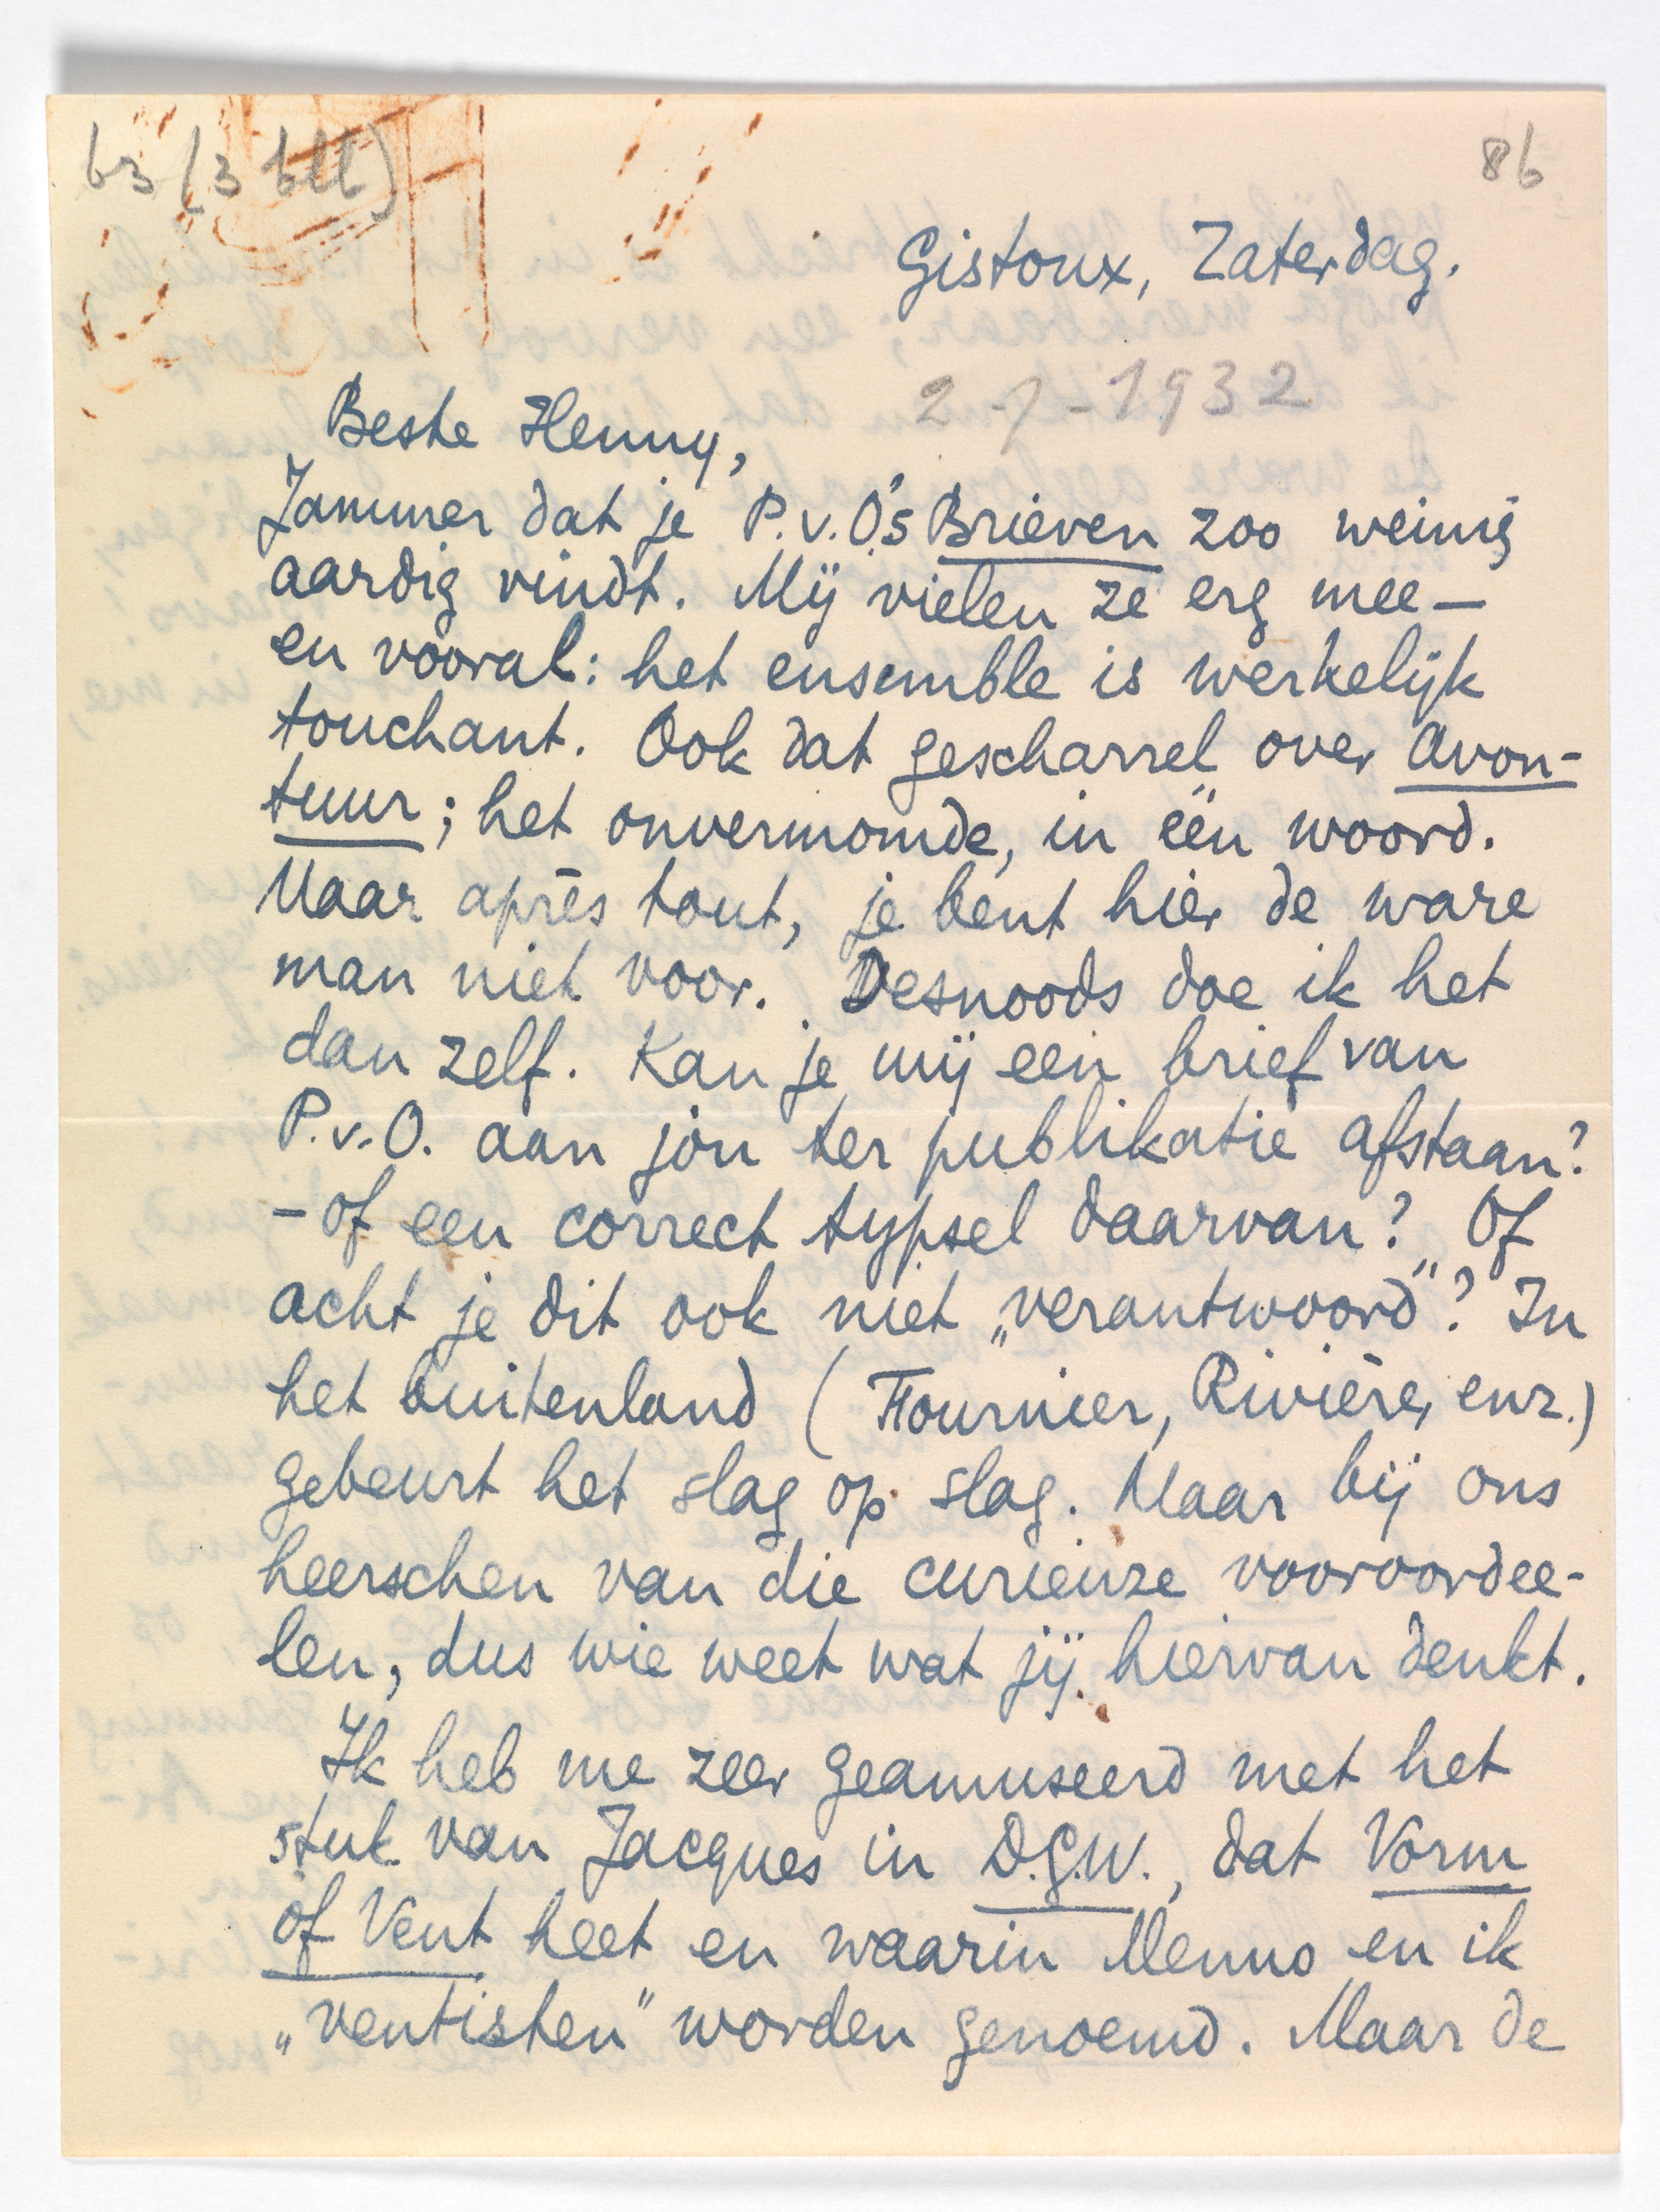 b3 (3 bll)
86
Gistoux, Zaterdag.
2-1-1932
Beste Henny,
Jammer dat je P.v.O.'s Brieven zoo weinig
aardig vindt. Mij vielen ze erg mee —
en vooral: het ensemble is werkelijk
touchant. Ook dat gescharrel over Avon-
tuur; het onvermomde, in één woord.
Maar après tout, je bent hier de ware
man niet voor. Desnoods doe ik het
dan zelf. Kan je mij een brief van
P.v.O. aan jou ter publikatie afstaan?
— of een correct typsel daarvan? Of
acht je dit ook niet „verantwoord"? In
het buitenland (Fournier, Rivière, enz.)
gebeurt het slag op slag. Maar bij ons
heerschen van die curieuze vooroordee-
len, dus wie weet wat jij hiervan denkt.
Ik heb me zeer geamuseerd met het
stuk van Jacques in D.G.W., dat Vorm
of Vent heet en waarin Menno en ik
„ventisten" worden genoemd. Maar de